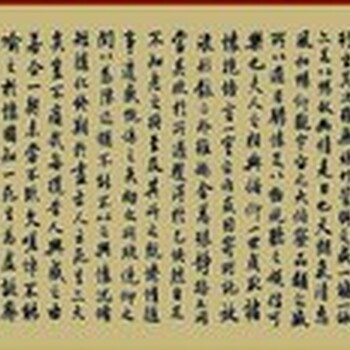 列坐其次雖無絲竹管弦之盛一觴一詠
亦足以暢敘幽情是日也天朗氣清惠
風和暢仰觀宇宙之大俯察品類之盛
所以遊目騁懷足以極視聽之娛信可
樂也夫人之相與俯仰一世或取諸
懷抱悟言一室之內或因寄所託放
浪形骸之外雖趣舍萬殊靜躁不同
當其欣於所遇暫得於己快然自足
不知老之將至及其所之既惓情隨
事遷感慨係之矣向之所欣俛仰之
間以為陳迹猶不能不以之興懷況脩
短隨化終期於盡古人云死生亦大
矣豈不痛哉每攬昔人興感之由
若合一契未嘗不臨文嗟悼不能
喻之於懷固知一死生為虛誕齊